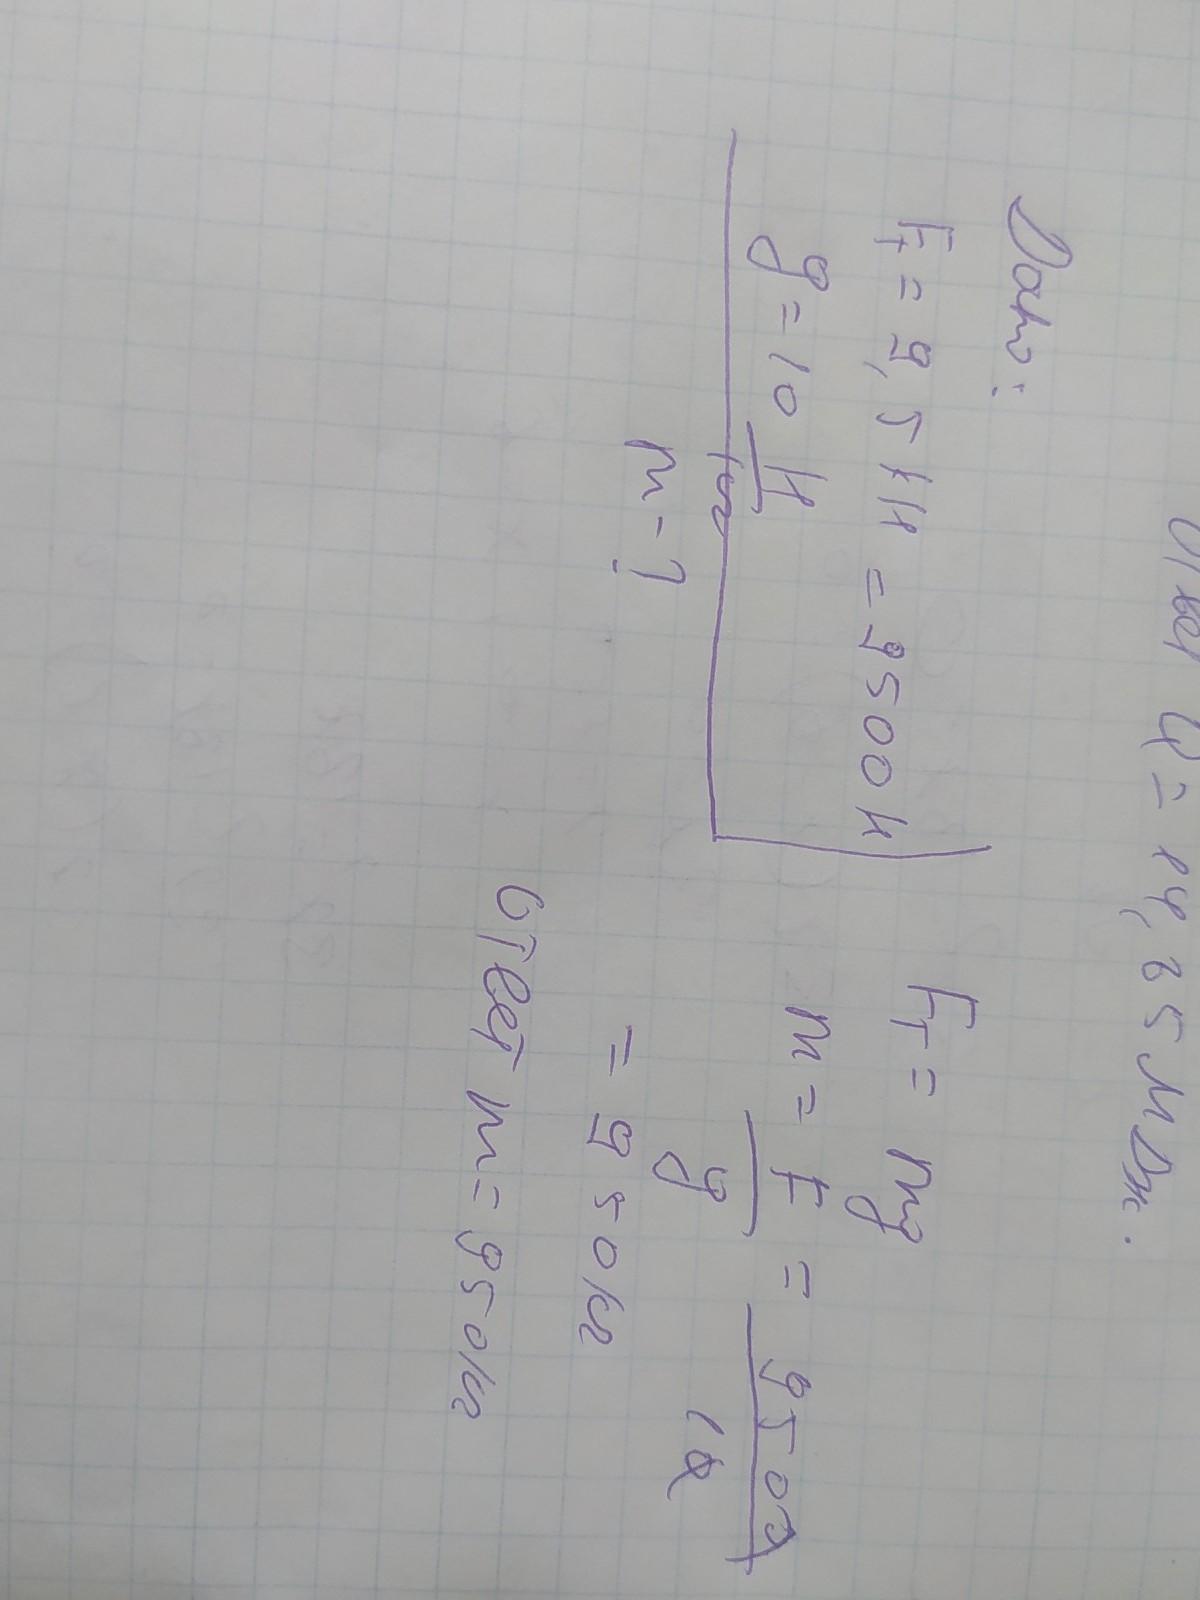 Ответ Q = 14,25 МДж.
Дано:
Fт = 9,5 кН = 9500 Н
g = 10 Н/кг
m - ?
Fт = mg
m = F/g = 9500/10
= 950 кг
Ответ m = 950 кг